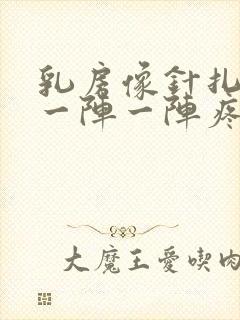 乳房像針扎
一陣一陣疼
大魔王愛喫肉